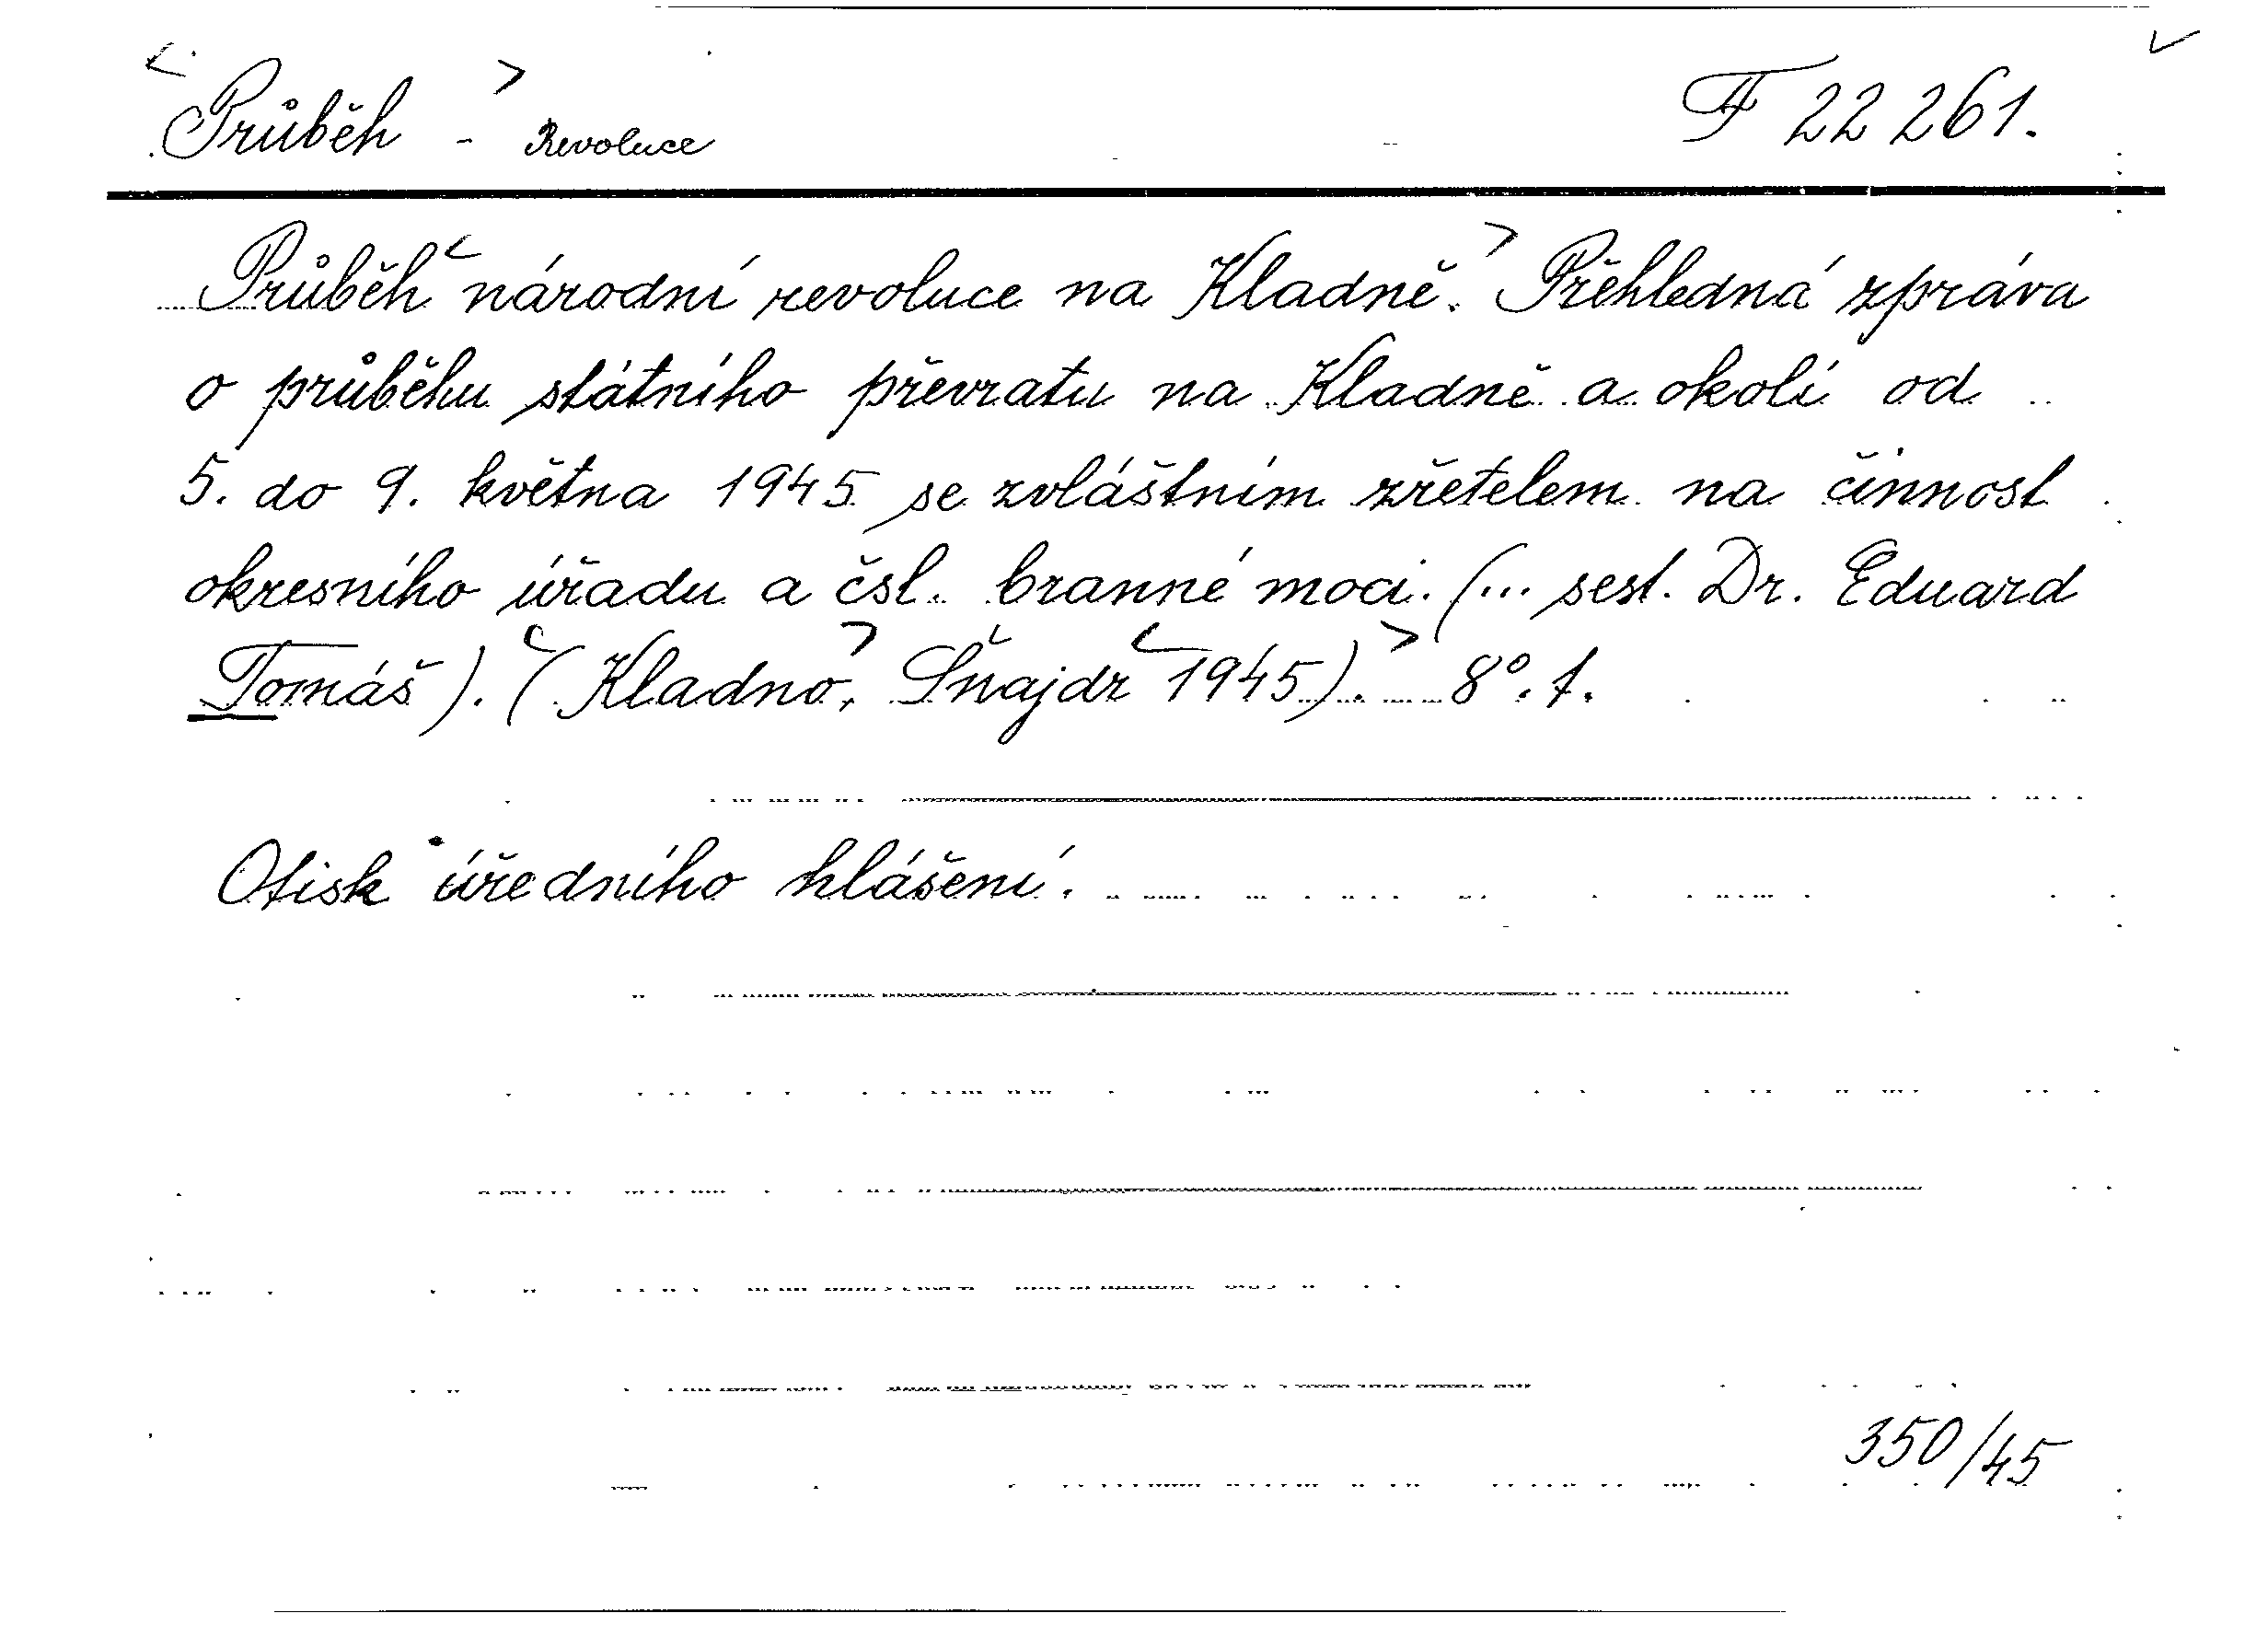 Průběh - Revoluce F 22 261.
Průběh národní revoluce na Kladně. Přehledná zpráva
o průběhu státního převratu na Kladně a okolí od
5. do 9. května 1945 se zvláštním zřetelem na činnost
okresního úřadu a čsl. branné moci. (... sest. Dr. Eduard
Tomáš). (Kladno, Šnajdr 1945). 8°. f.
Otisk úředního hlášení.
350/45